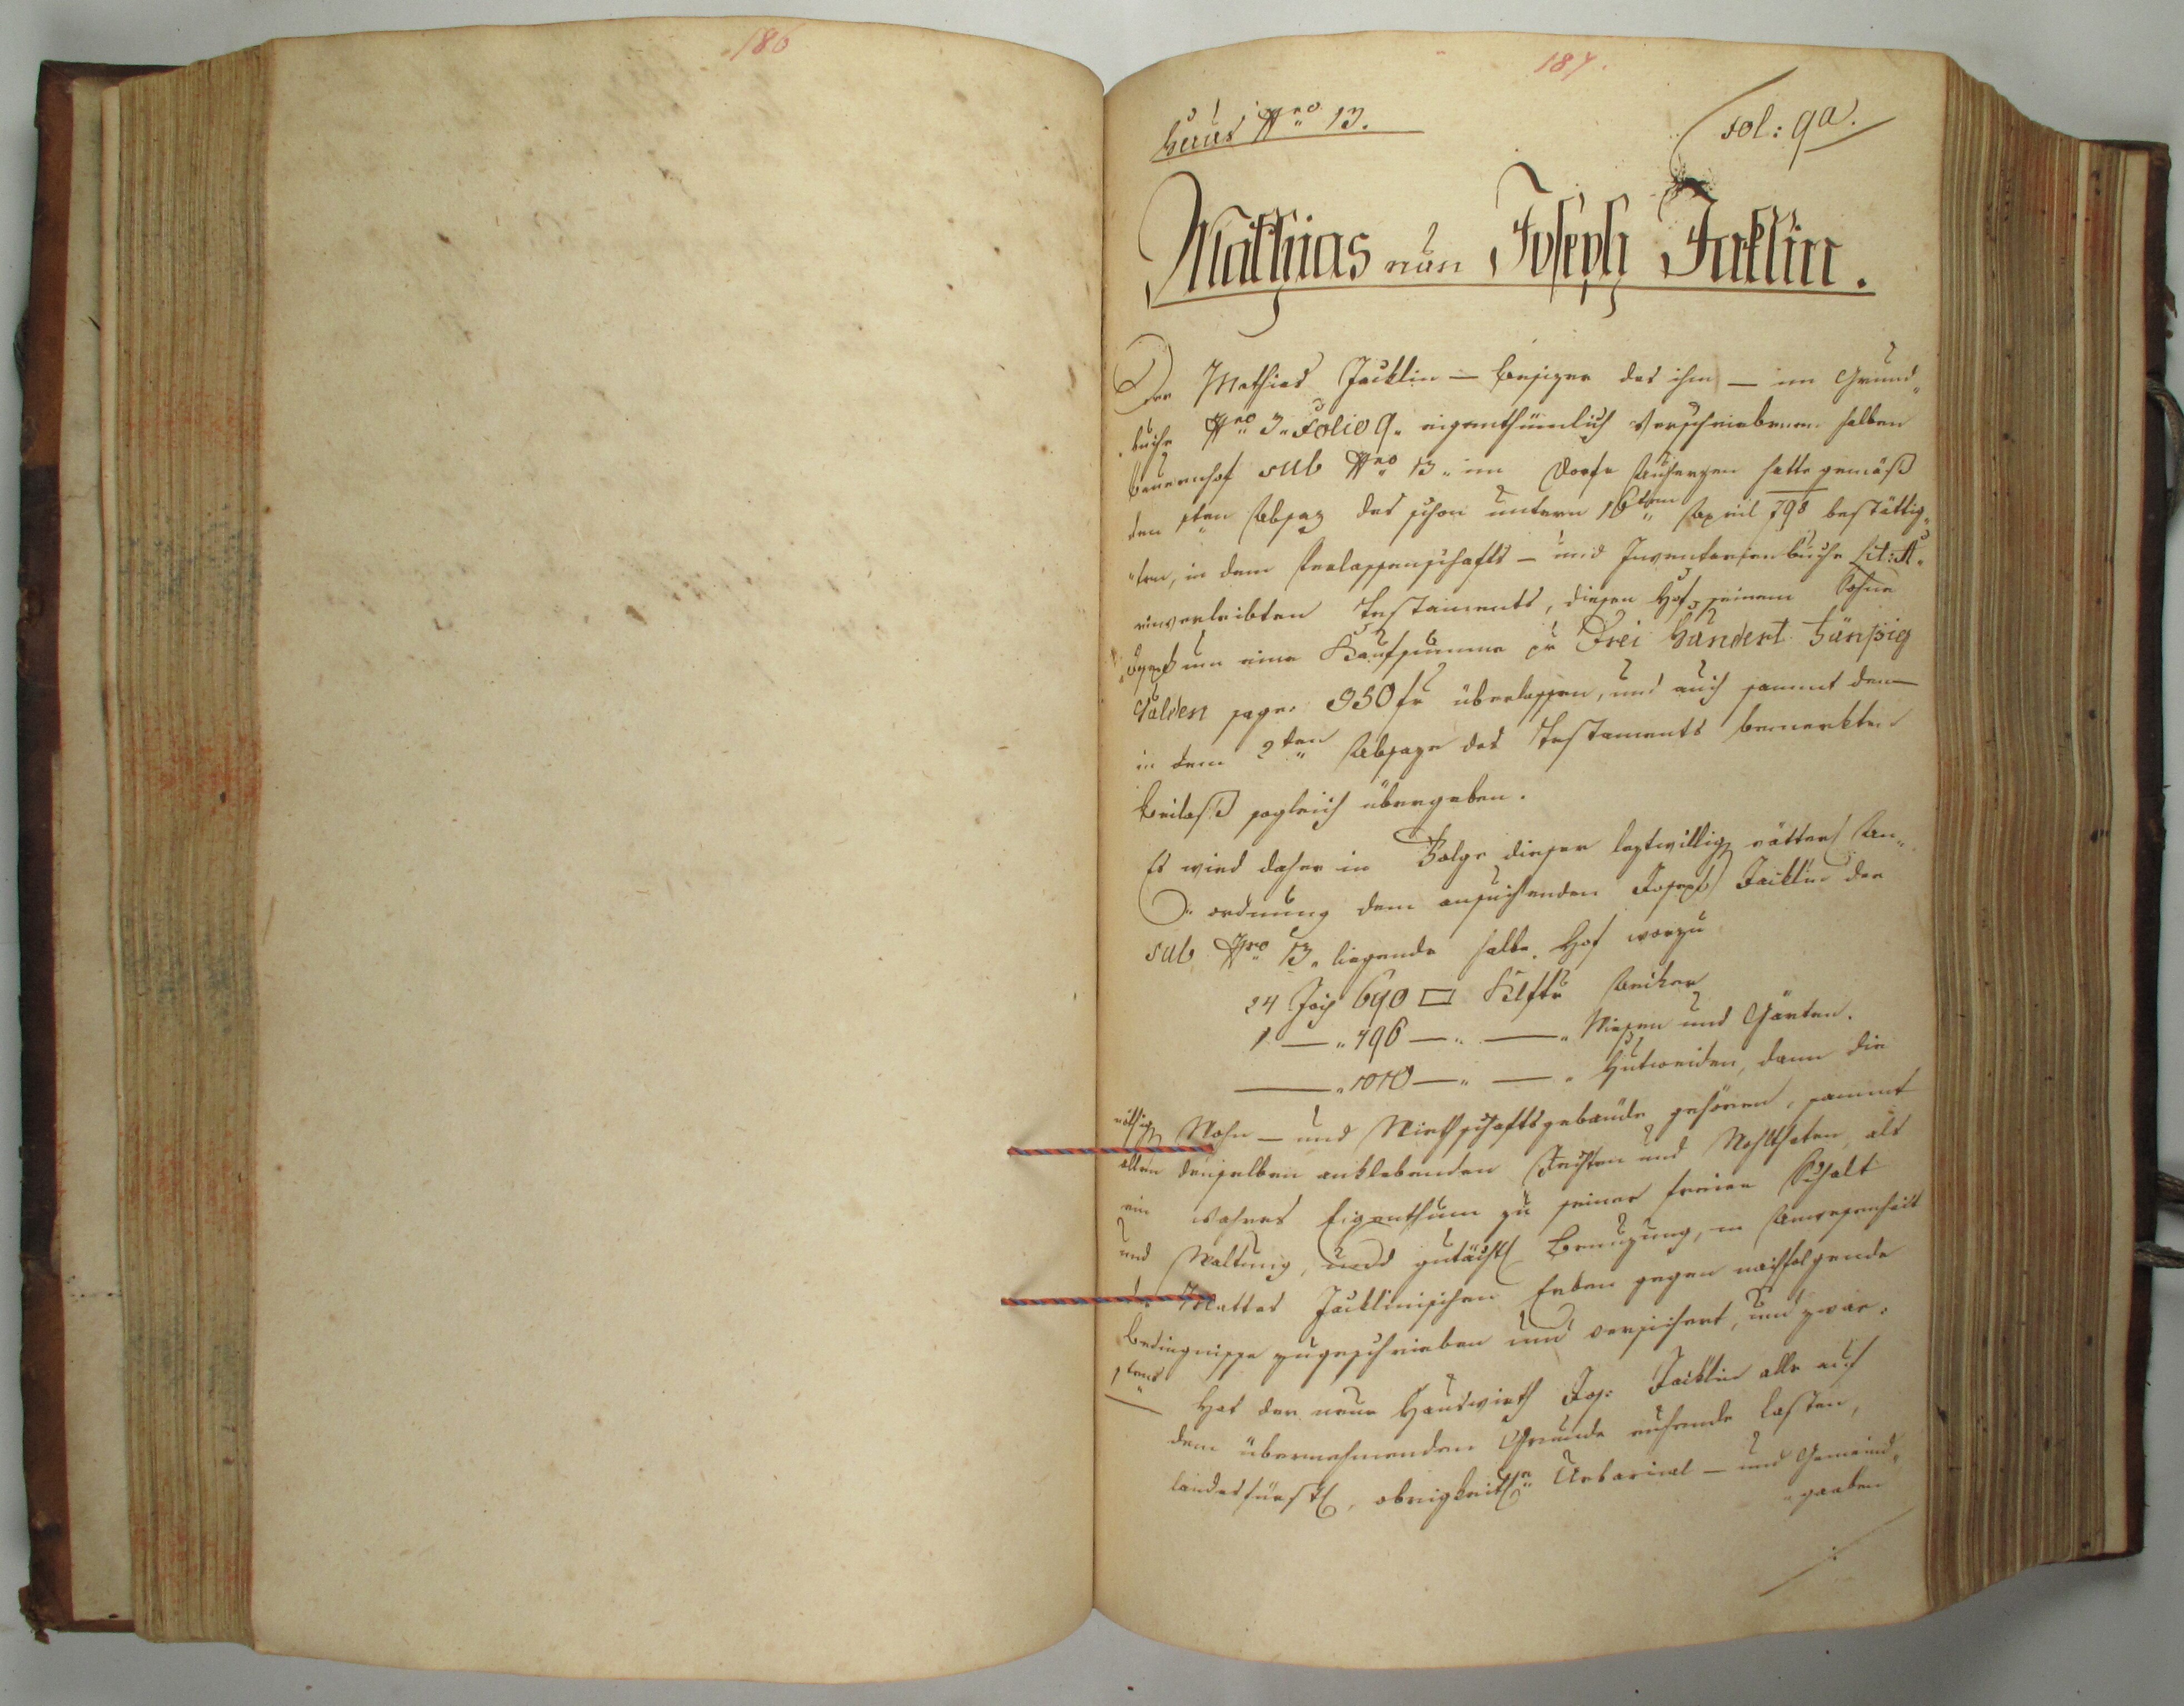 186
187.
Haus Nro 13.
Fol: 9a.
Mathias nun Joseph Jaklin.
Der Mathias Jacklin — Besizer des ihm — im Grund„
„buche Nro 3. Folio 9. eigenthümlich verschriebenen halben
Bauernhof sub Nro 13. im Dorfe hatte gemäß
den 1ten Absaz des schon untern 16ten April 798 bestättig„
„ten, in dem Verlassenschafts – und Inventarienbuche Lit: A.
einverleibten Testaments, diesen Hof seinem Sohne
Joseph um eine Kaufsumme pr Drei Hundert Fünfzig
Gulden sage: 350 fr überlassen, und auch sammt dem
in dem 2ten Absaze des Testaments bemerkten
Beilaß sogleich übergeben.
Es wird daher in Folge dieser leztwillig vätterl An„
„ordnung dem ansuchenden Joseph Jacklin der
sub Nro 13. liegende halbe Hof worzu
24 Joch 690 □ Klftr Aecker
1 — „ 496 — „ — „ Wiesen und Gärten.
— „ 1010 — „ — „ Hutweiden, dann die
nöthig Wohn – und Wirthschaftsgebäude gehören, sammt
allen denselben anklebenden Rechten und Wohlthaten, als
ein wahres Eigenthum zu seiner freien Schalt
und Waltung, und Benuzung, in Anwesenheit
der Jacklinischen Erben gegen nachfolgende
Bedingnisse zugeschrieben und versichert, und zwar:
1tens Hat der neue Hauswirth Jos: Jacklin alle auf
dem übernehmenden Grunde ruhende lasten,
landesfürstl, obrigkeitl: Urbarial – und Gemeind„
„gaaben